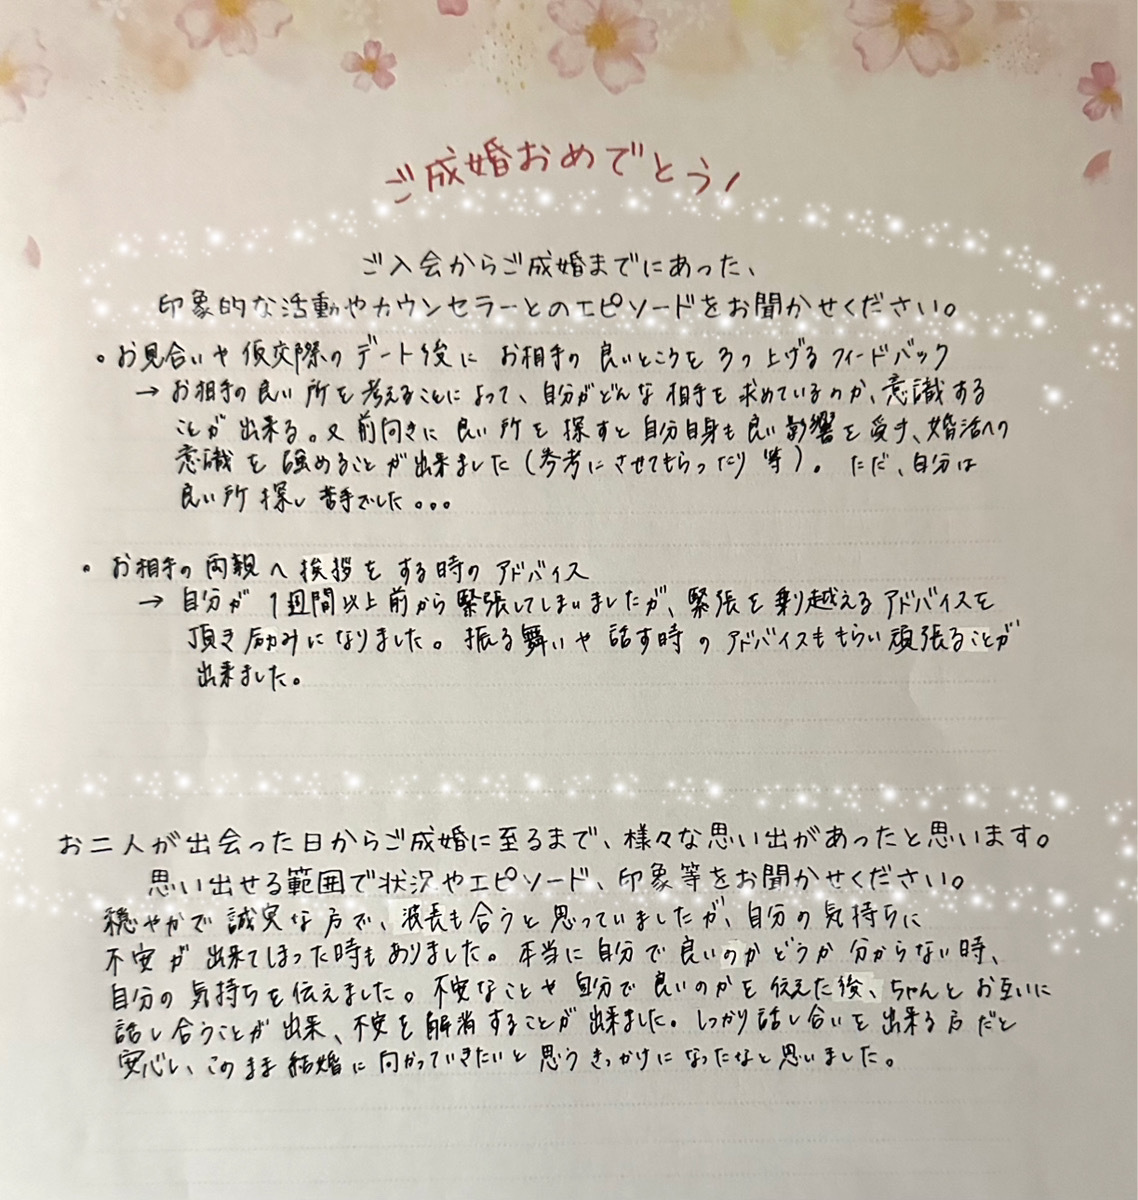 ご成婚おめでとう!
ご入会からご成婚までにあった、
印象的な活動やカウンセラーとのエピソードをお聞かせください。
・お見合いや仮交際のデート後に お相手の良いところを3つ上げるフィードバック
→ お相手の良い所を考えることによって、自分がどんな相手を求めているのか、意識する
ことが出来る。又前向きに良い所を探すと自分自身も良い影響を受け、婚活への
意識を強めることが出来ました(参考にさせてもらったり等)。ただ、自分は
良い所探し苦手でした。。。
・お相手の両親へ挨拶をする時のアドバイス
→ 自分が1週間以上前から緊張してしまいましたが、緊張を乗り越えるアドバイスを
頂き励みになりました。振る舞いや話す時のアドバイスももらい頑張ることが
出来ました。
お二人が出会った日からご成婚に至るまで、様々な思い出があったと思います。
思い出せる範囲で状況やエピソード、印象等をお聞かせください。
穏やかで誠実な方で、波長も合うと思っていましたが、自分の気持ちに
不安が出来てしまった時もありました。本当に自分で良いのかどうか分からない時、
自分の気持ちを伝えました。不安なことや自分で良いのかを伝えた後、ちゃんとお互いに
話し合うことが出来、不安を解消することが出来ました。しっかり話し合いを出来る方だと
安心し、このまま結婚に向かっていきたいと思うきっかけになったなと思いました。